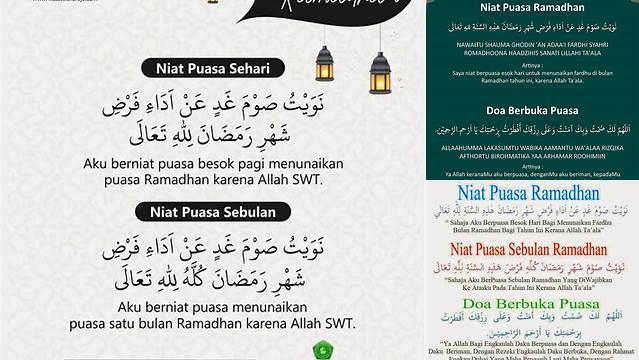 Niat Puasa Sehari
نَوَيْتُ صَوْمَ غَدٍ عَنْ اَدَاءِ فَرْضِ
شَهْرِ رَمَضَانَ لِلّٰهِ تَعَالَى
Aku berniat puasa besok pagi menunaikan
puasa Ramadhan karena Allah SWT.
Niat Puasa Sebulan
نَوَيْتُ صَوْمَ غَدٍ عَنْ اَدَاءِ فَرْضِ
شَهْرِ رَمَضَانَ كُلَّهُ لِلّٰهِ تَعَالَى
Aku berniat puasa menunaikan
puasa satu bulan Ramadhan karena Allah SWT.
Niat Puasa Ramadhan
نَوَيْتُ صَوْمَ غَدٍ عَنْ اَدَاءِ فَرْضِ شَهْرِ رَمَضَانَ هٰذِهِ السَّنَةِ لِلّٰهِ تَعَالَى
NAWAITU SHAUMA GHODIN 'AN ADAA'I FARDHI SYAHRI
ROMADHOONA HAADZIHIS SANATI LILLAHI TA'ALA
Artinya :
Saya niat berpuasa esok hari untuk menunaikan fardhu di bulan
Ramadhan tahun ini, karena Allah Ta'ala.
Doa Berbuka Puasa
اَللّٰهُمَّ لَكَ صُمْتُ وَبِكَ اٰمَنْتُ وَعَلَى رِزْقِكَ اَفْطَرْتُ بِرَحْمَتِكَ يَا اَرْحَمَ الرَّحِمِيْنَ
ALLAAHUMMA LAKASUMTU WABIKA AAMANTU WA'ALAA RIZQIKA
AFTHORTU BIROHMATIKA YAA ARHAMAR ROOHIMIIN
Artinya :
Ya Allah keranaMu aku berpuasa, denganMu aku beriman, kepadaMu
Niat Puasa Ramadhan
نَوَيْتُ صَوْمَ غَدٍ عَنْ اَدَاءِ فَرْضِ شَهْرِ رَمَضَانَ هٰذِهِ السَّنَةِ لِلّٰهِ تَعَالَى
" Sahaja Aku Berpuasa Besok Hari Bagi Menunaikan Fardhu
Bulan Ramadhan Bagi Tahun Ini Kerana Allah Ta'ala"
Niat Puasa Sebulan Ramadhan
نَوَيْتُ صَوْمَ شَهْرِ رَمَضَانَ كُلِّهِ فَرْضَ هٰذِهِ السَّنَةِ لِلّٰهِ تَعَالَى
"Sahaja Aku BerPuasa Sebulan Ramadhan Yang DiWajibkan
Ke Atasku Pada Tahun Ini Kerana Allah Ta'ala"
Doa Berbuka Puasa
اَللّٰهُمَّ لَكَ صُمْتُ وَبِكَ اٰمَنْتُ وَعَلَى رِزْقِكَ اَفْطَرْتُ
بِرَحْمَتِكَ يَا اَرْحَمَ الرَّاحِمِيْنَ
"Ya Allah Bagi Engkaulah Daku Berpuasa dan Dengan Engkaulah
Daku Beriman, Dengan Rezeki Engkaulah Daku Berbuka, Dengan Rahmat